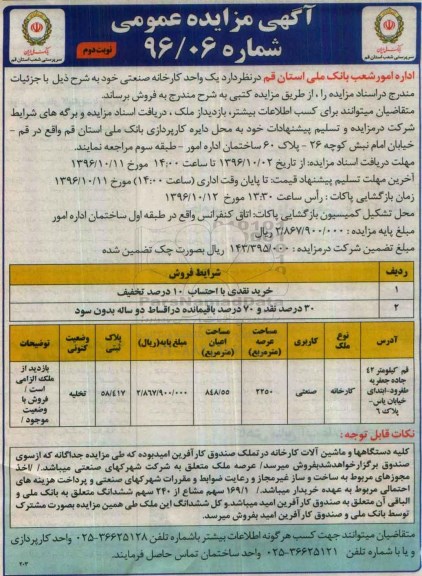 آگهی مزایده عمومی
شماره ۹۶/۰۶
نوبت دوم
اداره امور شعب بانک ملی استان قم درنظر دارد یک واحد کارخانه صنعتی خود به شرح ذیل با جزئیات
مندرج در اسناد مزایده را ، از طریق مزایده کتبی به شرح مندرج به فروش برساند.
متقاضیان میتوانند برای کسب اطلاعات بیشتر، بازدید از ملک ، دریافت اسناد مزایده و برگه های شرایط
شرکت در مزایده و تسلیم پیشنهادات خود به محل دایره کارپردازی بانک ملی استان قم واقع در قم -
خیابان امام نبش کوچه ۲۶ - پلاک ۶۰ ساختمان اداره امور - طبقه سوم مراجعه نمایند.
مهلت دریافت اسناد مزایده: از تاریخ ۱۳۹۶/۱۰/۰۲ تا ساعت ۱۴:۰۰ مورخ ۱۳۹۶/۱۰/۱۱
آخرین مهلت تسلیم پیشنهاد قیمت: تا پایان وقت اداری (ساعت ۱۴:۰۰) مورخ ۱۳۹۶/۱۰/۱۱
زمان بازگشایی پاکات : رأس ساعت ۱۳:۳۰ مورخ ۱۳۹۶/۱۰/۱۲
محل تشکیل کمیسیون بازگشایی پاکات: اتاق کنفرانس واقع در طبقه اول ساختمان اداره امور
مبلغ پایه مزایده : ۲/۸۶۷/۹۰۰/۰۰۰ ریال
مبلغ تضمین شرکت در مزایده : ۱۴۳/۳۹۵/۰۰۰ ریال بصورت چک تضمین شده
ردیف شرایط فروش
۱ خرید نقدی با احتساب ۱۰ درصد تخفیف
۲ ۳۰ درصد نقد و ۷۰ درصد باقیمانده در اقساط دو ساله بدون سود
آدرس نوع ملک کاربری مساحت عرصه (مترمربع) مساحت اعیان (مترمربع) مبلغ پایه(ریال) پلاک ثبتی وضعیت کنونی توضیحات
قم کیلومتر ۴۲ جاده جعفریه طغرود-ابتدای خیابان یاس- پلاک ۶ کارخانه صنعتی ۲۲۵۰ ۸۴۸/۵۵ ۲/۸۶۷/۹۰۰/۰۰۰ ۵۸/۴۱۷ تخلیه بازدید از ملک الزامی است / فروش با وضعیت موجود /
نکات قابل توجه :
کلیه دستگاهها و ماشین آلات کارخانه در تملک صندوق کارآفرین امید بوده که طی مزایده جداگانه که از سوی
صندوق برگزار خواهد شد بفروش میرسد/ عرصه ملک متعلق به شرکت شهرکهای صنعتی میباشد./ اخذ
مجوزهای مربوط به ساخت و ساز غیرمجاز و رعایت ضوابط و مقررات شهرکهای صنعتی و پرداخت هزینه های
احتمالی مربوط به عهده خریدار میباشد./ ۱۶۹/۱ سهم مشاع از ۲۴۰ سهم ششدانگ متعلق به بانک ملی و
الباقی آن متعلق به صندوق کارآفرین امید میباشد و کل ششدانگ این ملک طی همین مزایده بصورت مشترک
توسط بانک ملی و صندوق کارآفرین امید بفروش میرسد.
متقاضیان میتوانند جهت کسب هرگونه اطلاعات بیشتر باشماره تلفن ۳۶۶۲۵۱۲۸-۰۲۵ واحد کارپردازی
و یا با شماره تلفن ۳۶۶۲۵۱۲۱-۰۲۵ واحد ساختمان تماس حاصل فرمایند.